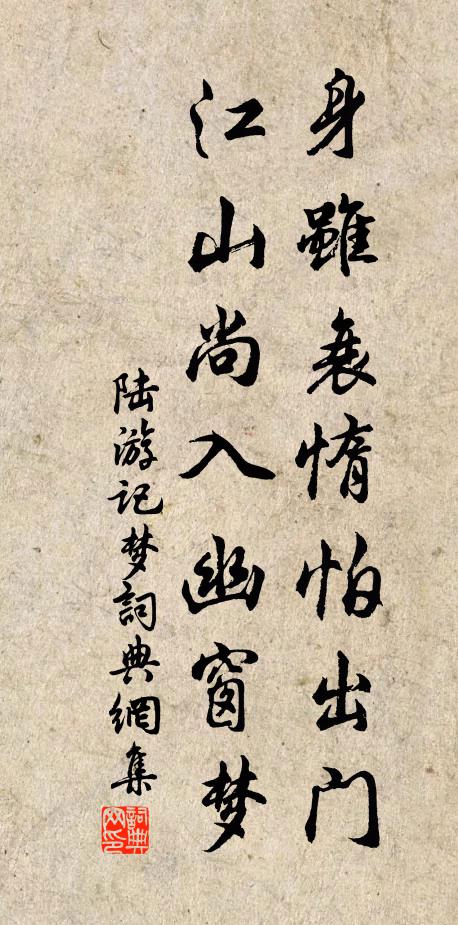 身雖衰惰怕出门
江山尚入幽窗梦
陆游记梦詞典網集
詞典网印